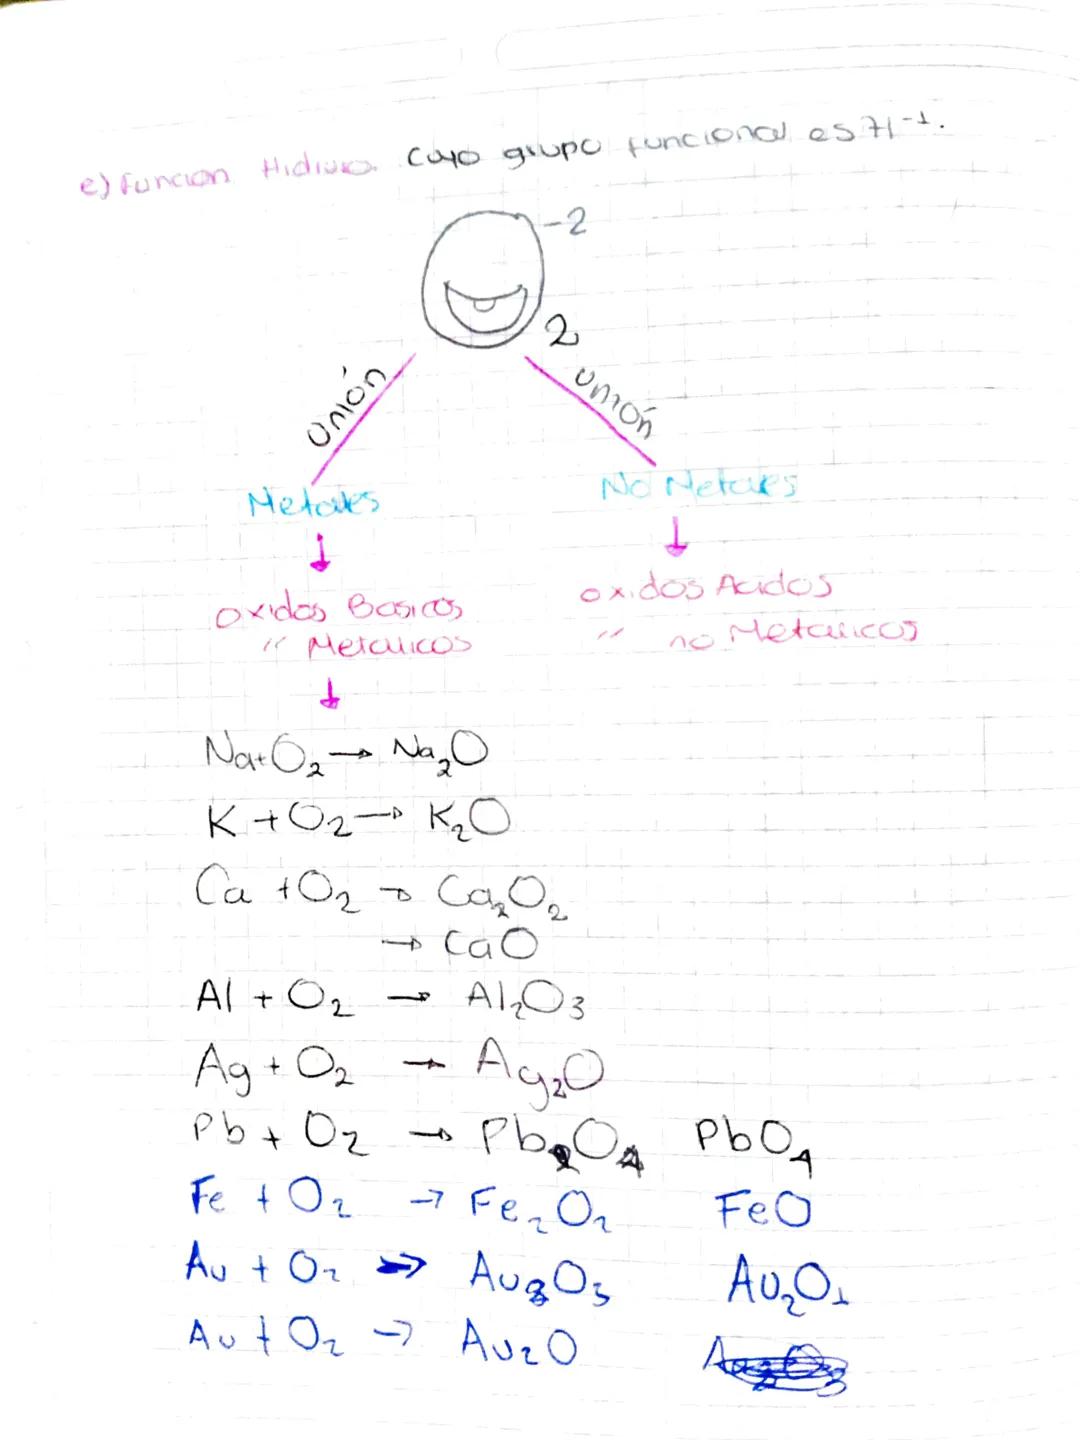 e) Funcion Hidruro. Cuyo grupo funcional es H⁻¹.
O -2
2
Unión Unión
Metales No Metales
↓ ↓
oxidos Basicos oxidos Acidos
" Metalicos " no Metalicos
↓
Na + O₂ → Na₂O
K + O₂ → K₂O
Ca + O₂ → Ca₂O₂
→ CaO
Al + O₂ → Al₂O₃
Ag + O₂ → Ag₂O
Pb + O₂ → Pb₂O₄ PbO₄
Fe + O₂ → Fe₂O₂ FeO
Au + O₂ → Au₂O₃ Au₂O₁
Au + O₂ → Au₂O